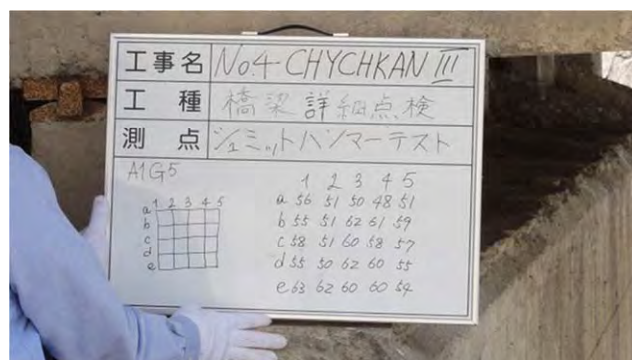 工事名 No.4-CHYCHKAN III
工種 橋梁詳細点検
測点 シュミットハンマーテスト
A1G5
1 2 3 4 5
a
b
c
d
e
1 2 3 4 5
a 56 51 50 48 51
b 55 51 62 61 59
c 58 51 60 58 57
d 55 50 62 60 55
e 63 62 60 60 54